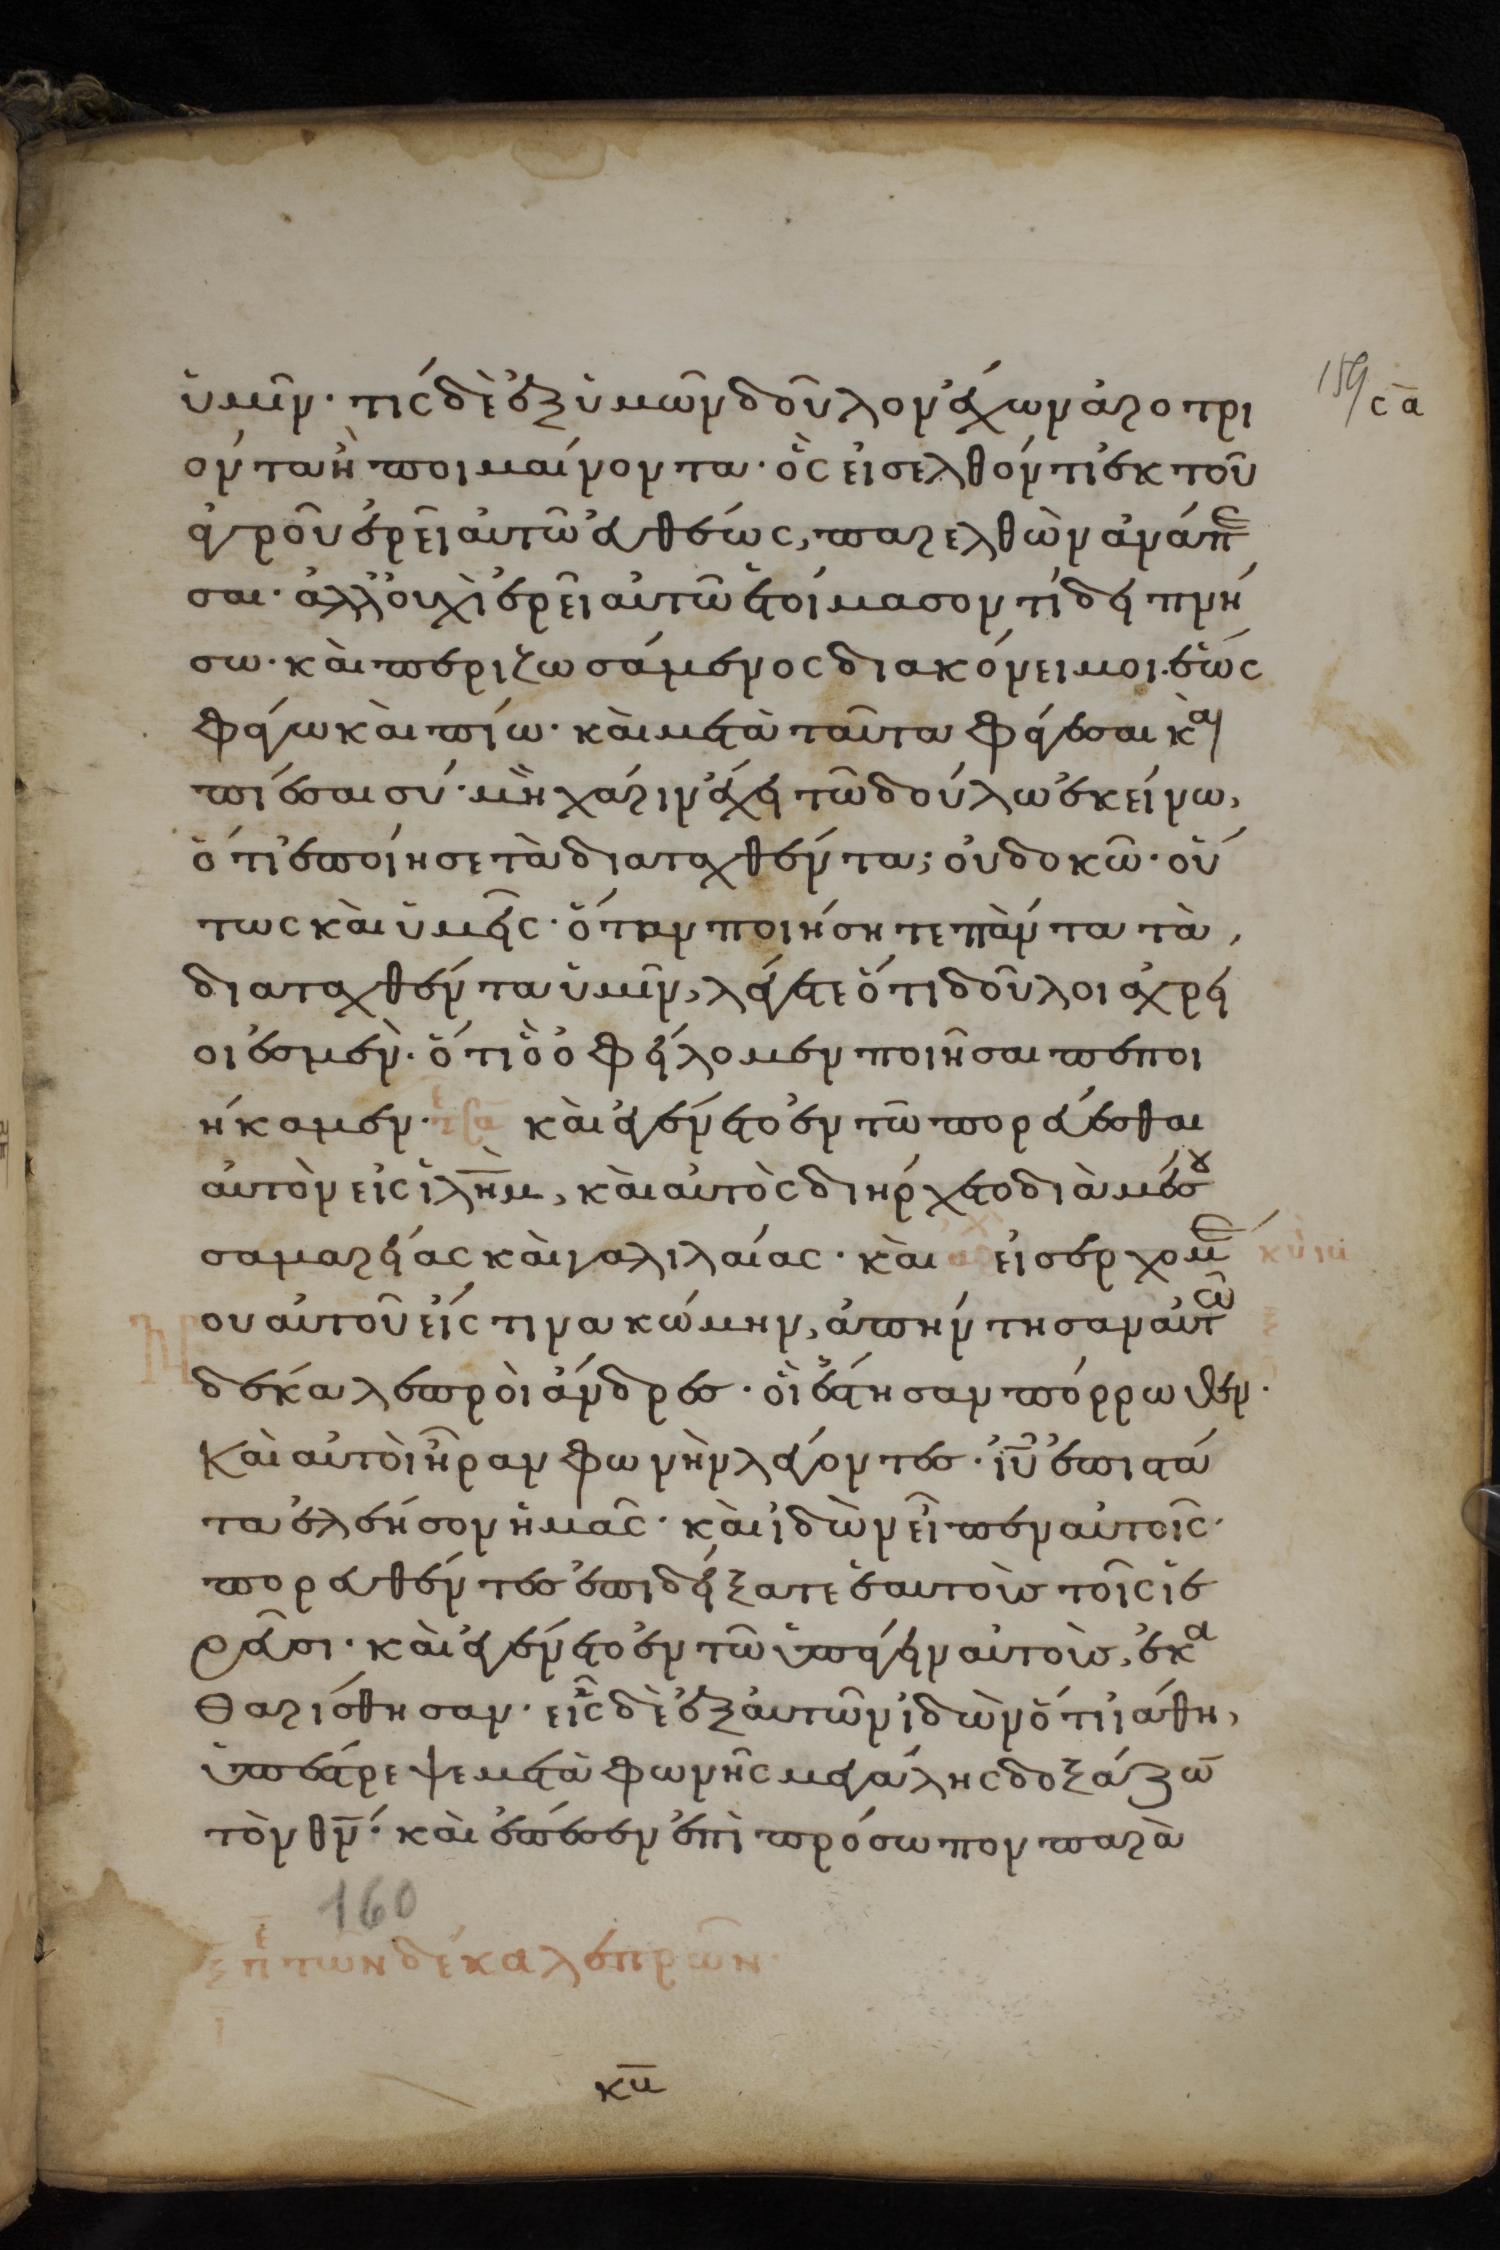 ὑμῖν· τίς δὲ ἐξ ὑμῶν δοῦλον ἔχων ἀροτρι
159 σ̄ᾱ
όντα ἢ ποιμαίνοντα· ὃς εἰσελθόντι ἐκ τοῦ
ἀγροῦ ἐρεῖ αὐτῶ εὐθέως, παρελθὼν ἀνάπε
σαι· ἀλλ' οὐχὶ ἐρεῖ αὐτῶ ἑτοίμασον τί δειπνή
σω· καὶ περιζωσάμενος διακόνει μοι· ἕως
φάγω καὶ πίω· καὶ μετὰ ταῦτα φάγεσαι κὰι
πίεσαι σύ· μὴ χάριν ἔχει τῶ δούλω ἐκείνω,
ὅτι ἐποίησε τὰ διαταχθέντα; οὐ δοκῶ· οὕ
τως καὶ ὑμεῖς· ὅταν ποιήσητε πάντα τὰ
διαταχθέντα ὑμῖν, λέγετε ὅτι δοῦλοι ἀχρεῖ
οι ἐσμέν· ὅτι ὃ ὀφείλομεν ποιῆσαι πεποι
ήκαμεν· καὶ ἐγένετο ἐν τῶ πορεύεσθαι
αὐτὸν εἰς ἱλη̄μ, καὶ αὐτὸς διήρχετο διὰ μέσου
σαμαρείας καὶ γαλιλαίας· καὶ εἰσερχομέν
ου αὐτοῦ εἴς τινα κώμην, ἀπήντησαν αὐτῶ
δέκα λεπροὶ ἄνδρες· οἳ ἔστησαν πόρρωθεν·
Καὶ αὐτοὶ ἦραν φωνὴν λέγοντες· ἰῡ ἐπιστά
τα ἐλέησον ἡμᾶς· καὶ ἰδὼν εἶπεν αὐτοῖς·
πορευθέντες ἐπιδείξατε ἑαυτοὺς τοῖς ἱε
ρεῦσι· καὶ ἐγένετο ἐν τῶ ὑπάγειν αὐτοὺς, ἐκα
θαρίσθησαν· εἷς δὲ ἐξ αὐτῶν ἰδὼν ὅτι ἰάθη,
ὑπέστρεψε μετὰ φωνῆς μεγάλης δοξάζω̄
τὸν θν̄· καὶ ἔπεσεν ἐπὶ πρόσωπον παρὰ
160
ξ̄ πε τῶν δέκα λεπρῶν